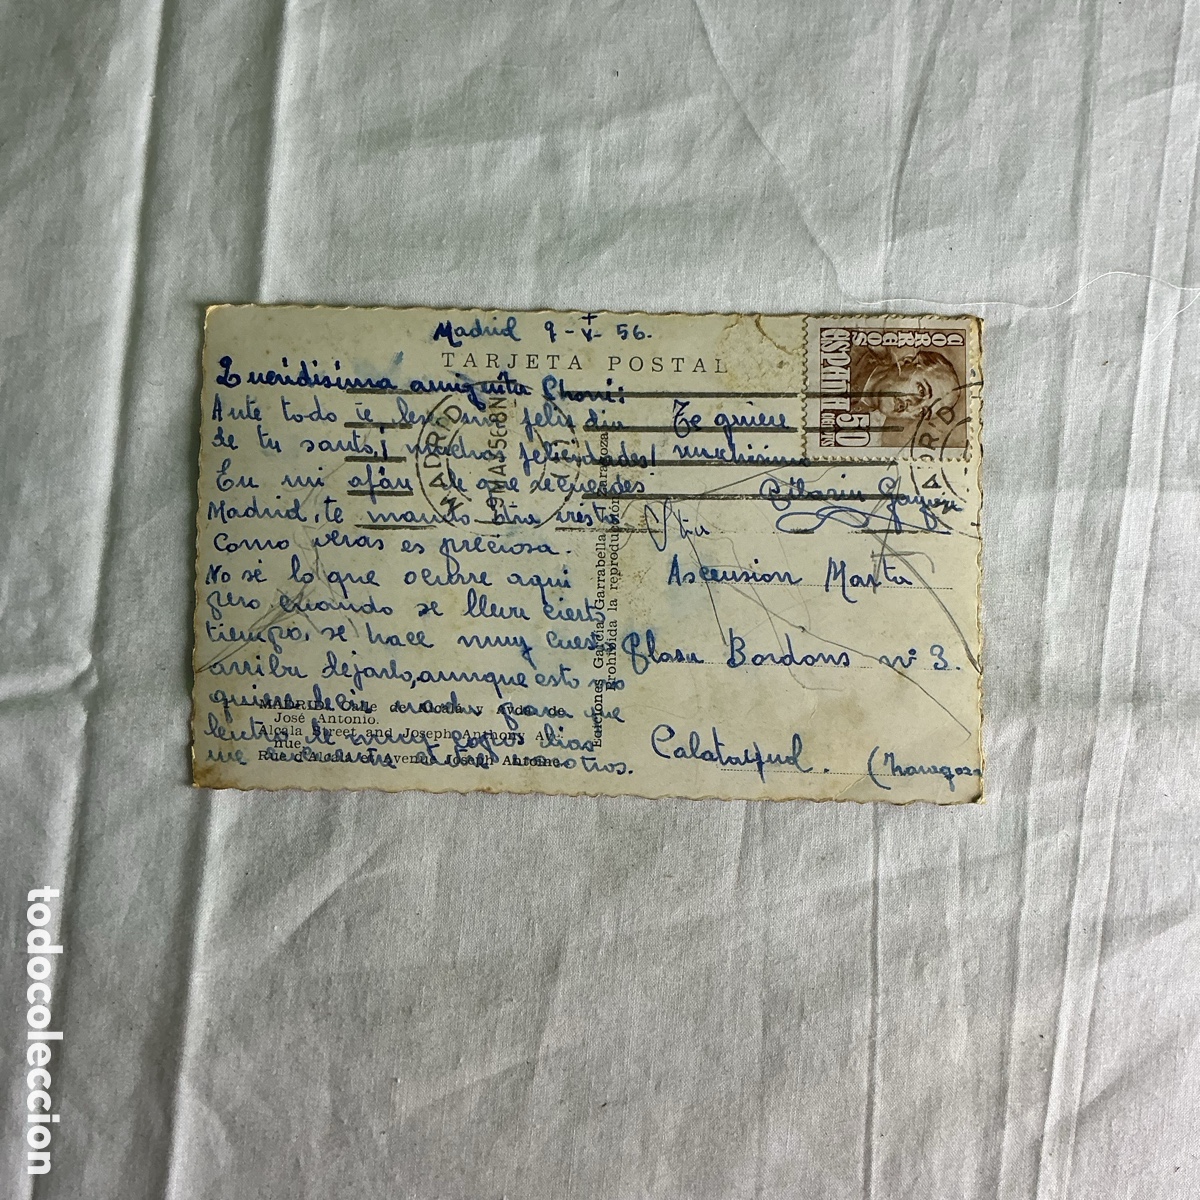 Madrid 9-V-56.
TARJETA POSTAL
Queridisima amiguita Choni:
Ante todo te feliz dia
de tu santo,¡ muchas felicidades!
En mi afán de que recuerdes
Madrid, te mando otra vista
como veras es preciosa.
No sé lo que ocurre aqui
pero, cuando se lleva cierto
tiempo, se hace muy cuesta
arriba dejarlo, aunque esto no
quiere decir nada para que
dentro de muy pocos dias
me encuentre entre vosotros.
Te quiere
muchisimo
Pilarin
MADRID. Calle de Alcalá y Avda. de
José Antonio.
Alcala Street and Joseph Anthony Ave-
nue.
Rue d'Alcala et Avenue Joseph Antoine.
Ediciones García Garrabella, Zaragoza
Prohibida la reproducción
CORREOS
ESPAÑA
50
CENTS
MADRID
9 MAY 56
MADRID
Srta
Ascension Marta
Plasa Bordons nº 3.
Calatayud. (Zaragoza
todocoleccion